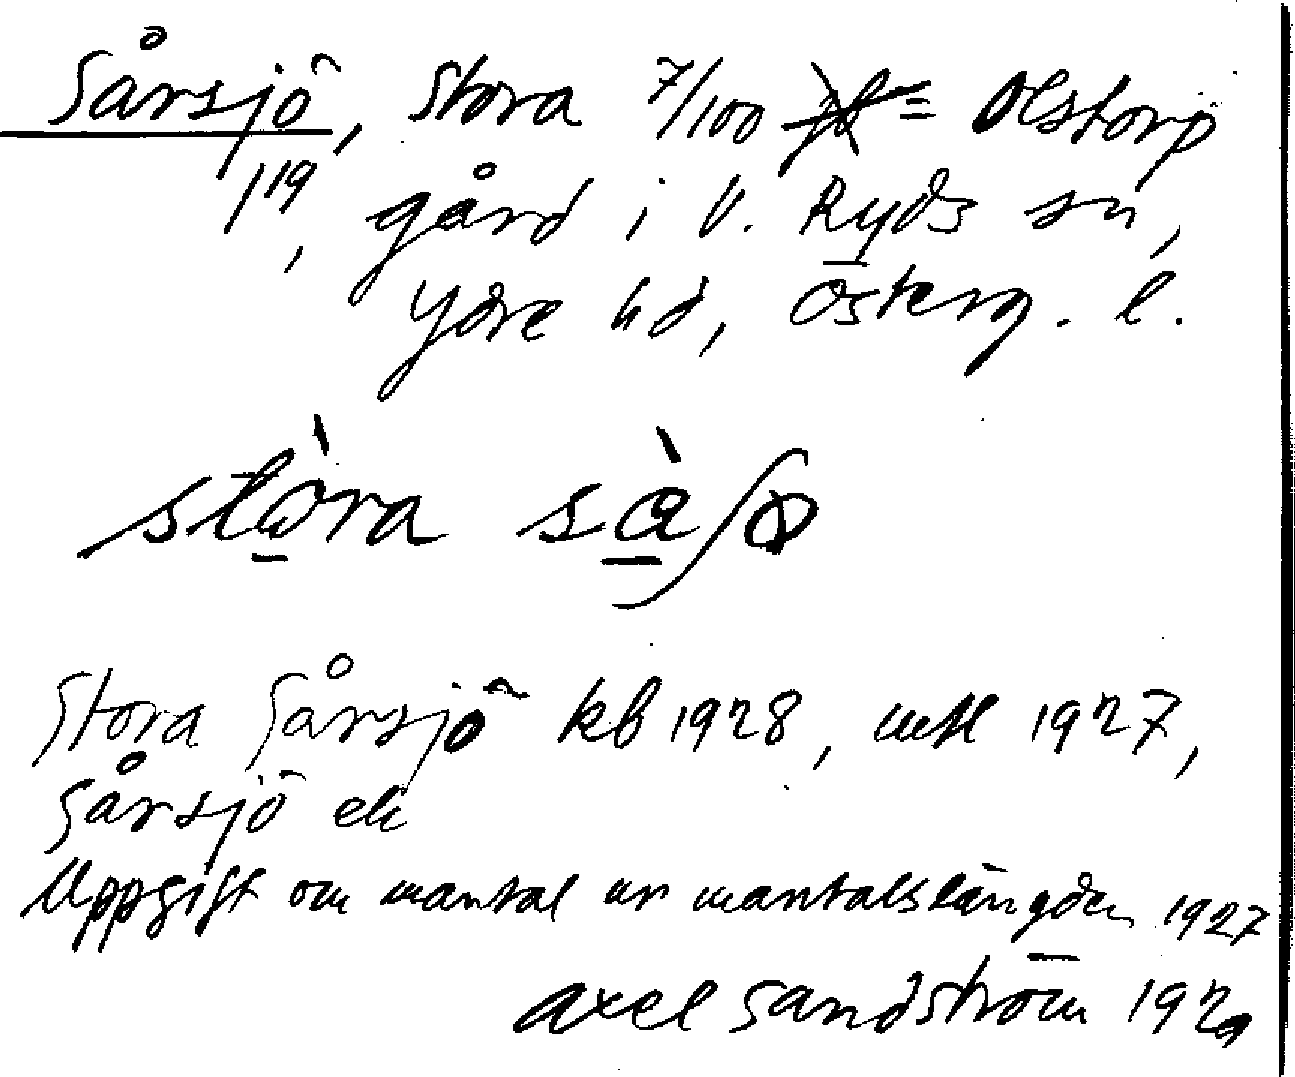 Sårsjö, Stora 7/100 = Olstorp
119
, gård i V. Ryds sn,
Ydre hd, Österg. l.
stòra sà
Stora Sårsjö kb 1928, mtl 1927,
Sårsjö ek
Uppgift om mantal ur mantalslängden 1927
Axel Sandström 1929